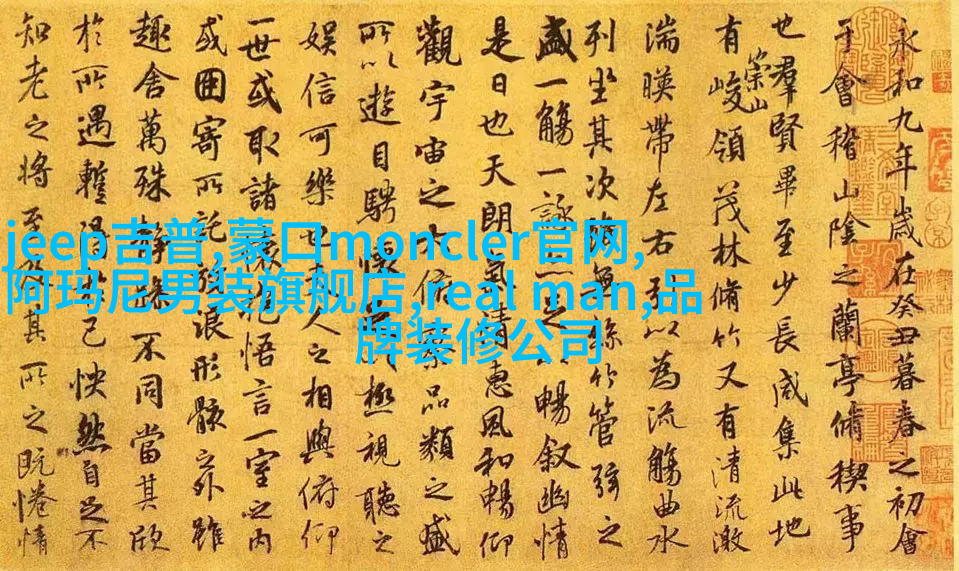 jeep吉普,蒙口moncler官网,
阿玛尼男装旗舰店,real man,品
牌装修公司
永和九年歲在癸丑暮春之初會
于會稽山陰之蘭亭脩稧事
也羣賢畢至少長咸集此地
有崇山峻領茂林脩竹又有清流激
湍暎帶左右引以為流觴曲水
列坐其次雖無絲竹管弦之
盛一觴一詠暢叙幽情
是日也天朗氣清惠風和暢仰
觀宇宙之大俯察品類之盛
所以遊目騁懷極視聽之
娛信可樂也夫人之相與俯仰
一世或取諸懷抱悟言一室之內
或因寄所託放浪形骸之外雖
趣舍萬殊靜躁不同當其欣
於所遇蹔得己怏然自足不
知老之將至及其所之既惓情